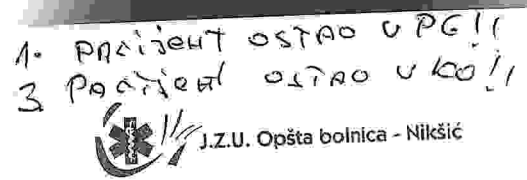 1. PACIJENT OSTAO U PG!!
3 PACIJENT OSTAO U KO!!
J.Z.U. Opšta bolnica - Nikšić